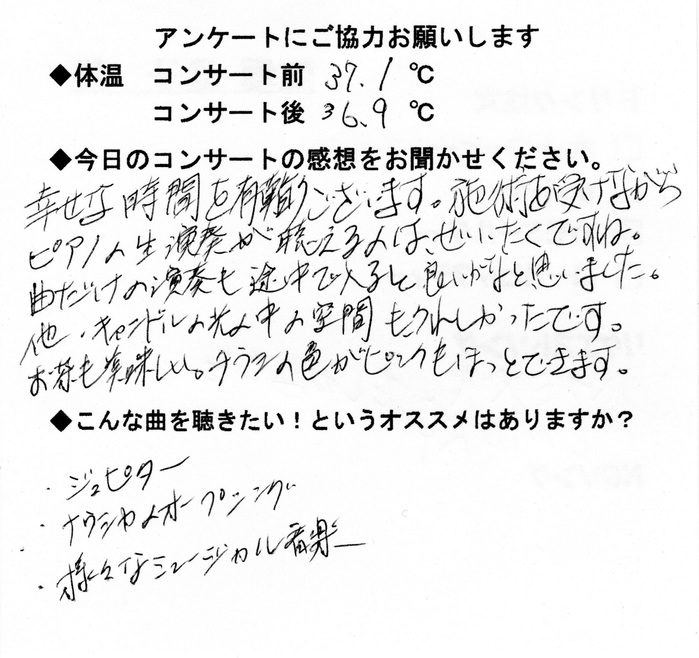 アンケートにご協力お願いします
◆体温　コンサート前 37.1 ℃
コンサート後 36.9 ℃
◆今日のコンサートの感想をお聞かせください。
幸せな時間を有難うございます。施術を受けながら
ピアノの生演奏が聴えるのは、ぜいたくですね。
曲だけの演奏も途中で入ると良いかなと思いました。
他、キャンドルの光の中の空間もうれしかったです。
お茶も美味しい。チラシの色がピンクもほっとできます。
◆こんな曲を聴きたい！というオススメはありますか？
・ジュピター
・ナウシカのオープニング
・様々なミュージカル音楽